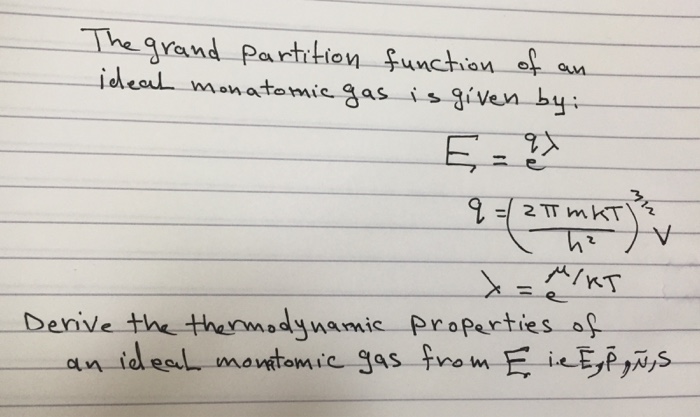 The grand partition function of an
ideal monatomic gas is given by:
Ξ = e^{qλ}
q = (2πmKT/h²)^{3/2} V
λ = e^{μ/KT}
Derive the thermodynamic properties of
an ideal monatomic gas from Ξ i.e Ē, P̄, N̄, S